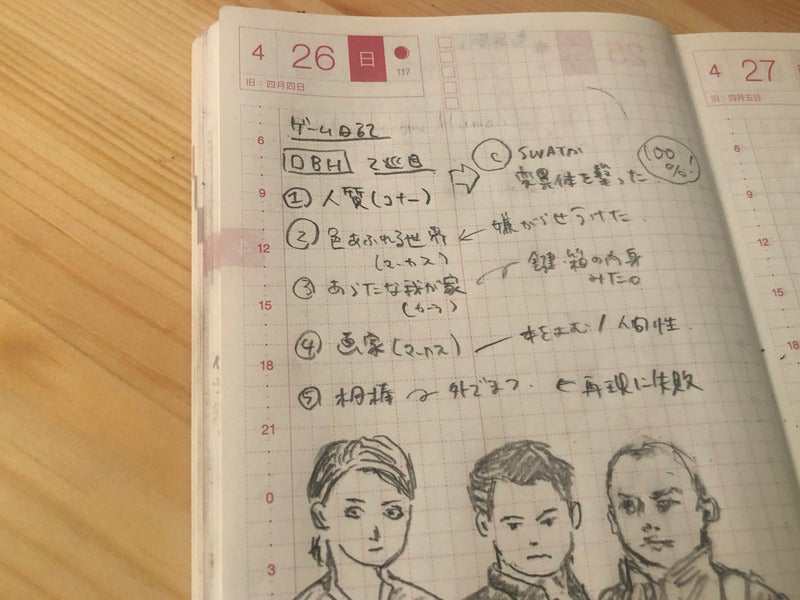 4 26 日
117
旧：四月四日
ゲーム日記
DBH 2巡目
① 人質(コナー)
⇨ Ⓒ SWATが
変異体を撃った
100%!
② 色あふれる世界
(マーカス)
← 嫌がらせうけた.
③ あらたな我が家
(カーラ)
鍵・箱の内身
みた。
④ 画家(マーカス)
本をよむ / 人間性
⑤ 相棒 〜 外でまつ. ← 再現に失敗
6
9
12
15
18
21
0
3
4 27
旧：四月五日
6
9
12
15
18